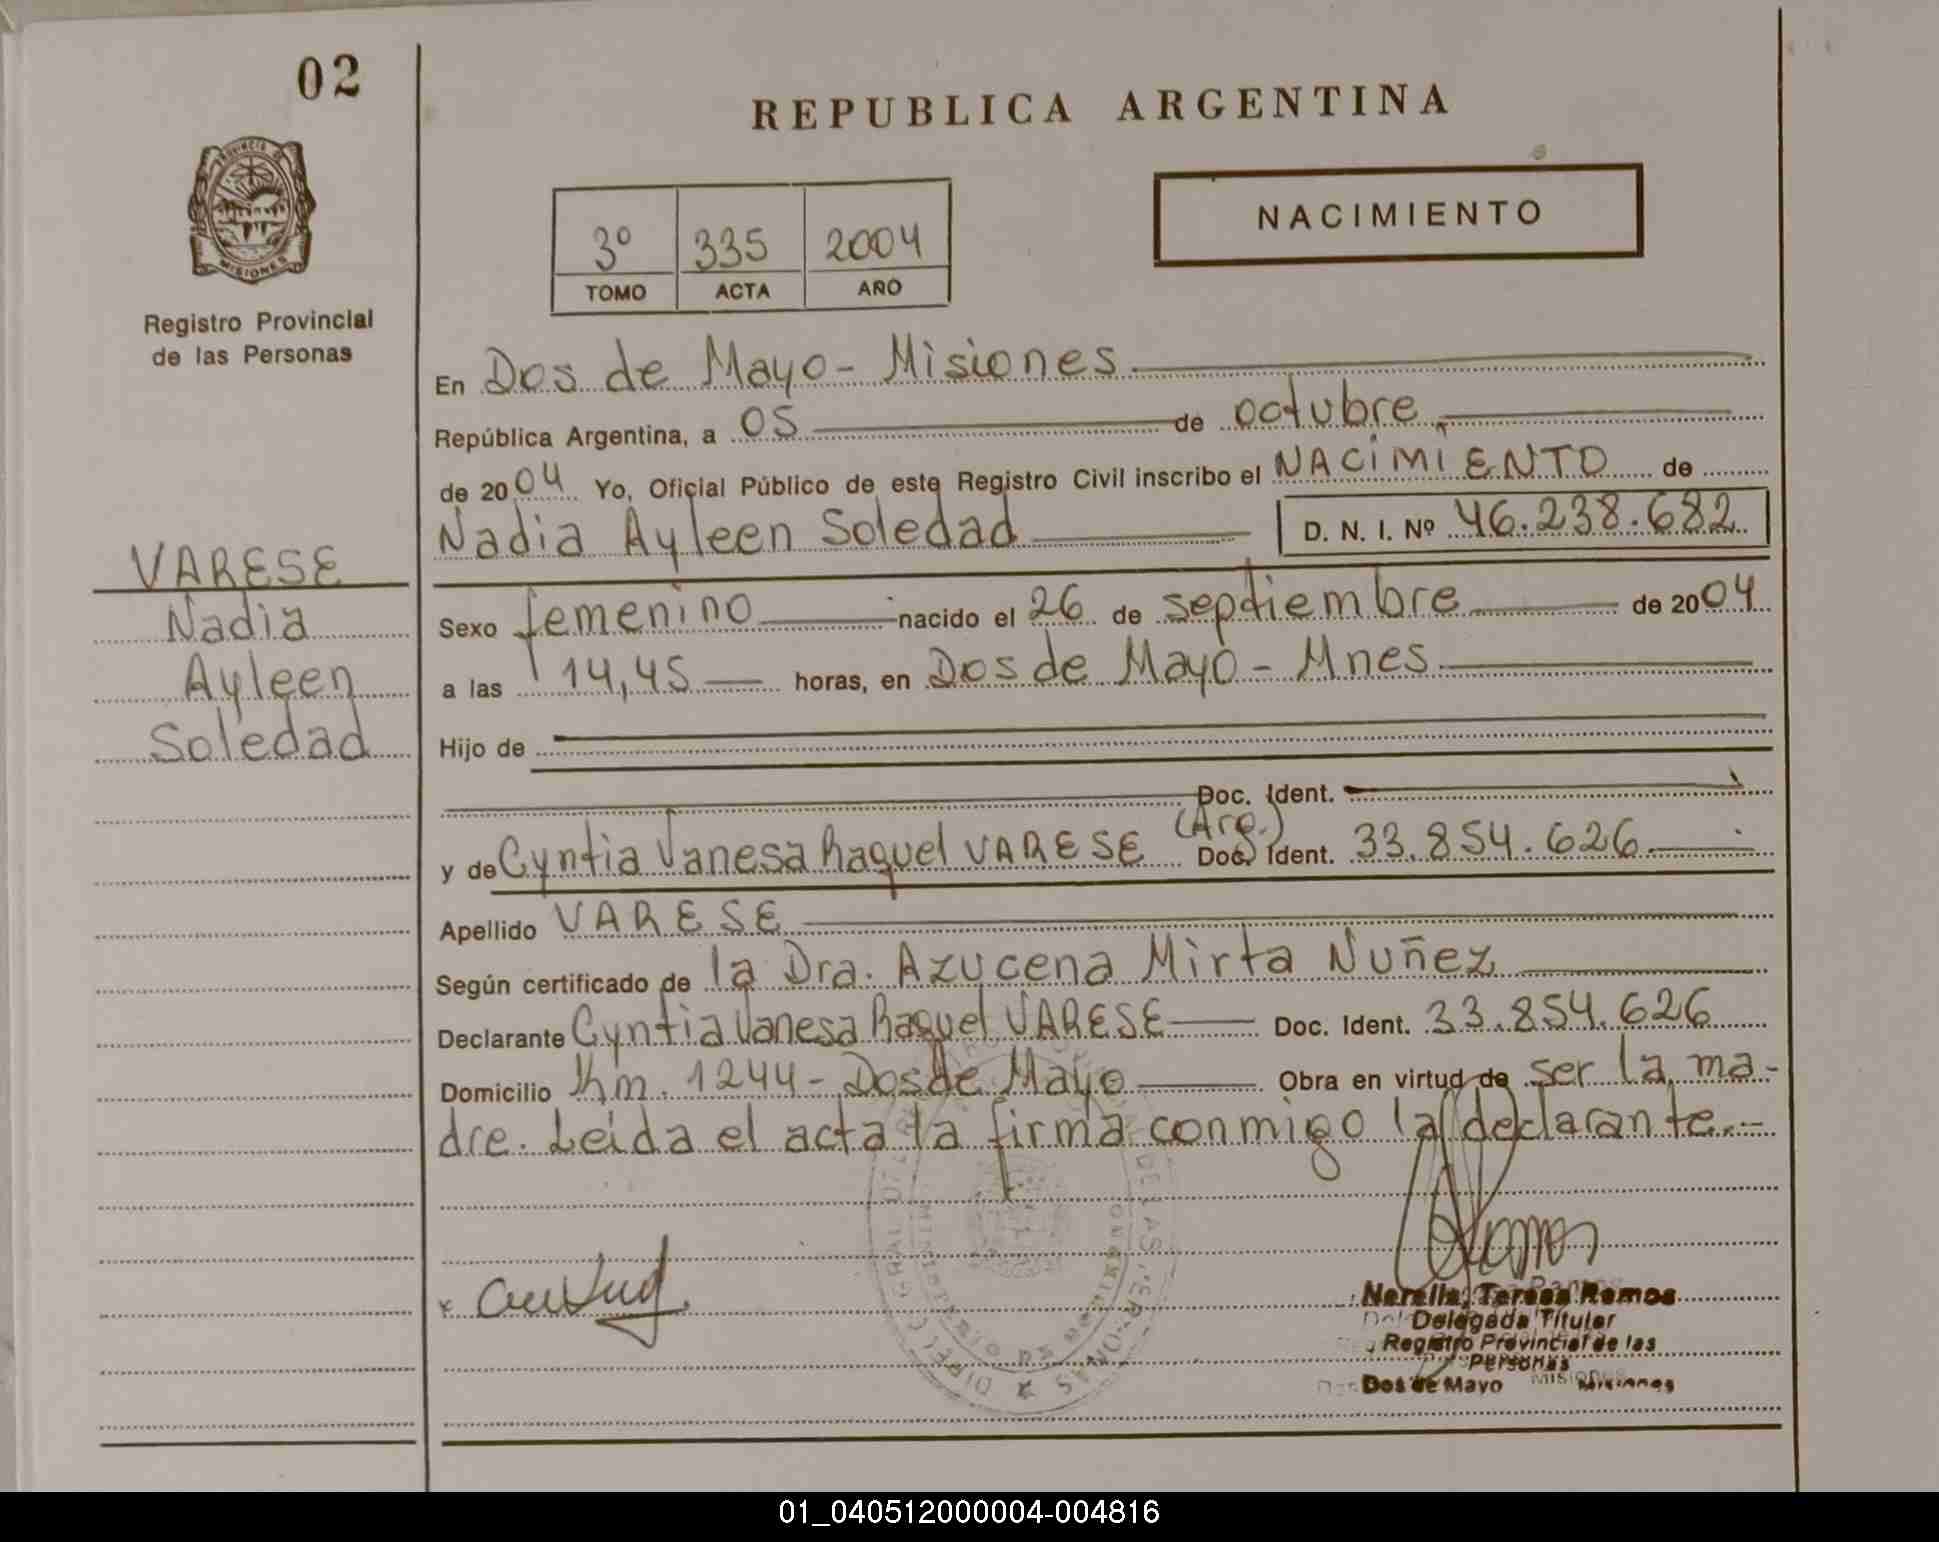 02
REPUBLICA ARGENTINA
PROVINCIA DE
MISIONES
Registro Provincial
de las Personas
NACIMIENTO
3º 335 2004
TOMO ACTA AÑO
En Dos de Mayo - Misiones
República Argentina, a 05 de octubre
de 2004 Yo, Oficial Público de este Registro Civil inscribo el NACIMIENTO de
Nadia Ayleen Soledad D. N. I. Nº 46.238.682
VARESE
Nadia
Ayleen
Soledad
Sexo femenino nacido el 26 de septiembre de 2004
a las 14,45 horas, en Dos de Mayo - Mnes
Hijo de
Doc. Ident.
y de Cyntia Vanesa Raquel VARESE (Arg.) Doc. Ident. 33.854.626
Apellido VARESE
Según certificado de la Dra. Azucena Mirta Nuñez
Declarante Cyntia Vanesa Raquel VARESE Doc. Ident. 33.854.626
Domicilio Km. 1244 - Dos de Mayo Obra en virtud de ser la ma-
dre. Leida el acta la firma conmigo la declarante.-
Nerella, Teresa Ramos
Delegada Titular
Registro Provincial de las
Personas
Dos de Mayo Misiones
01_040512000004-004816